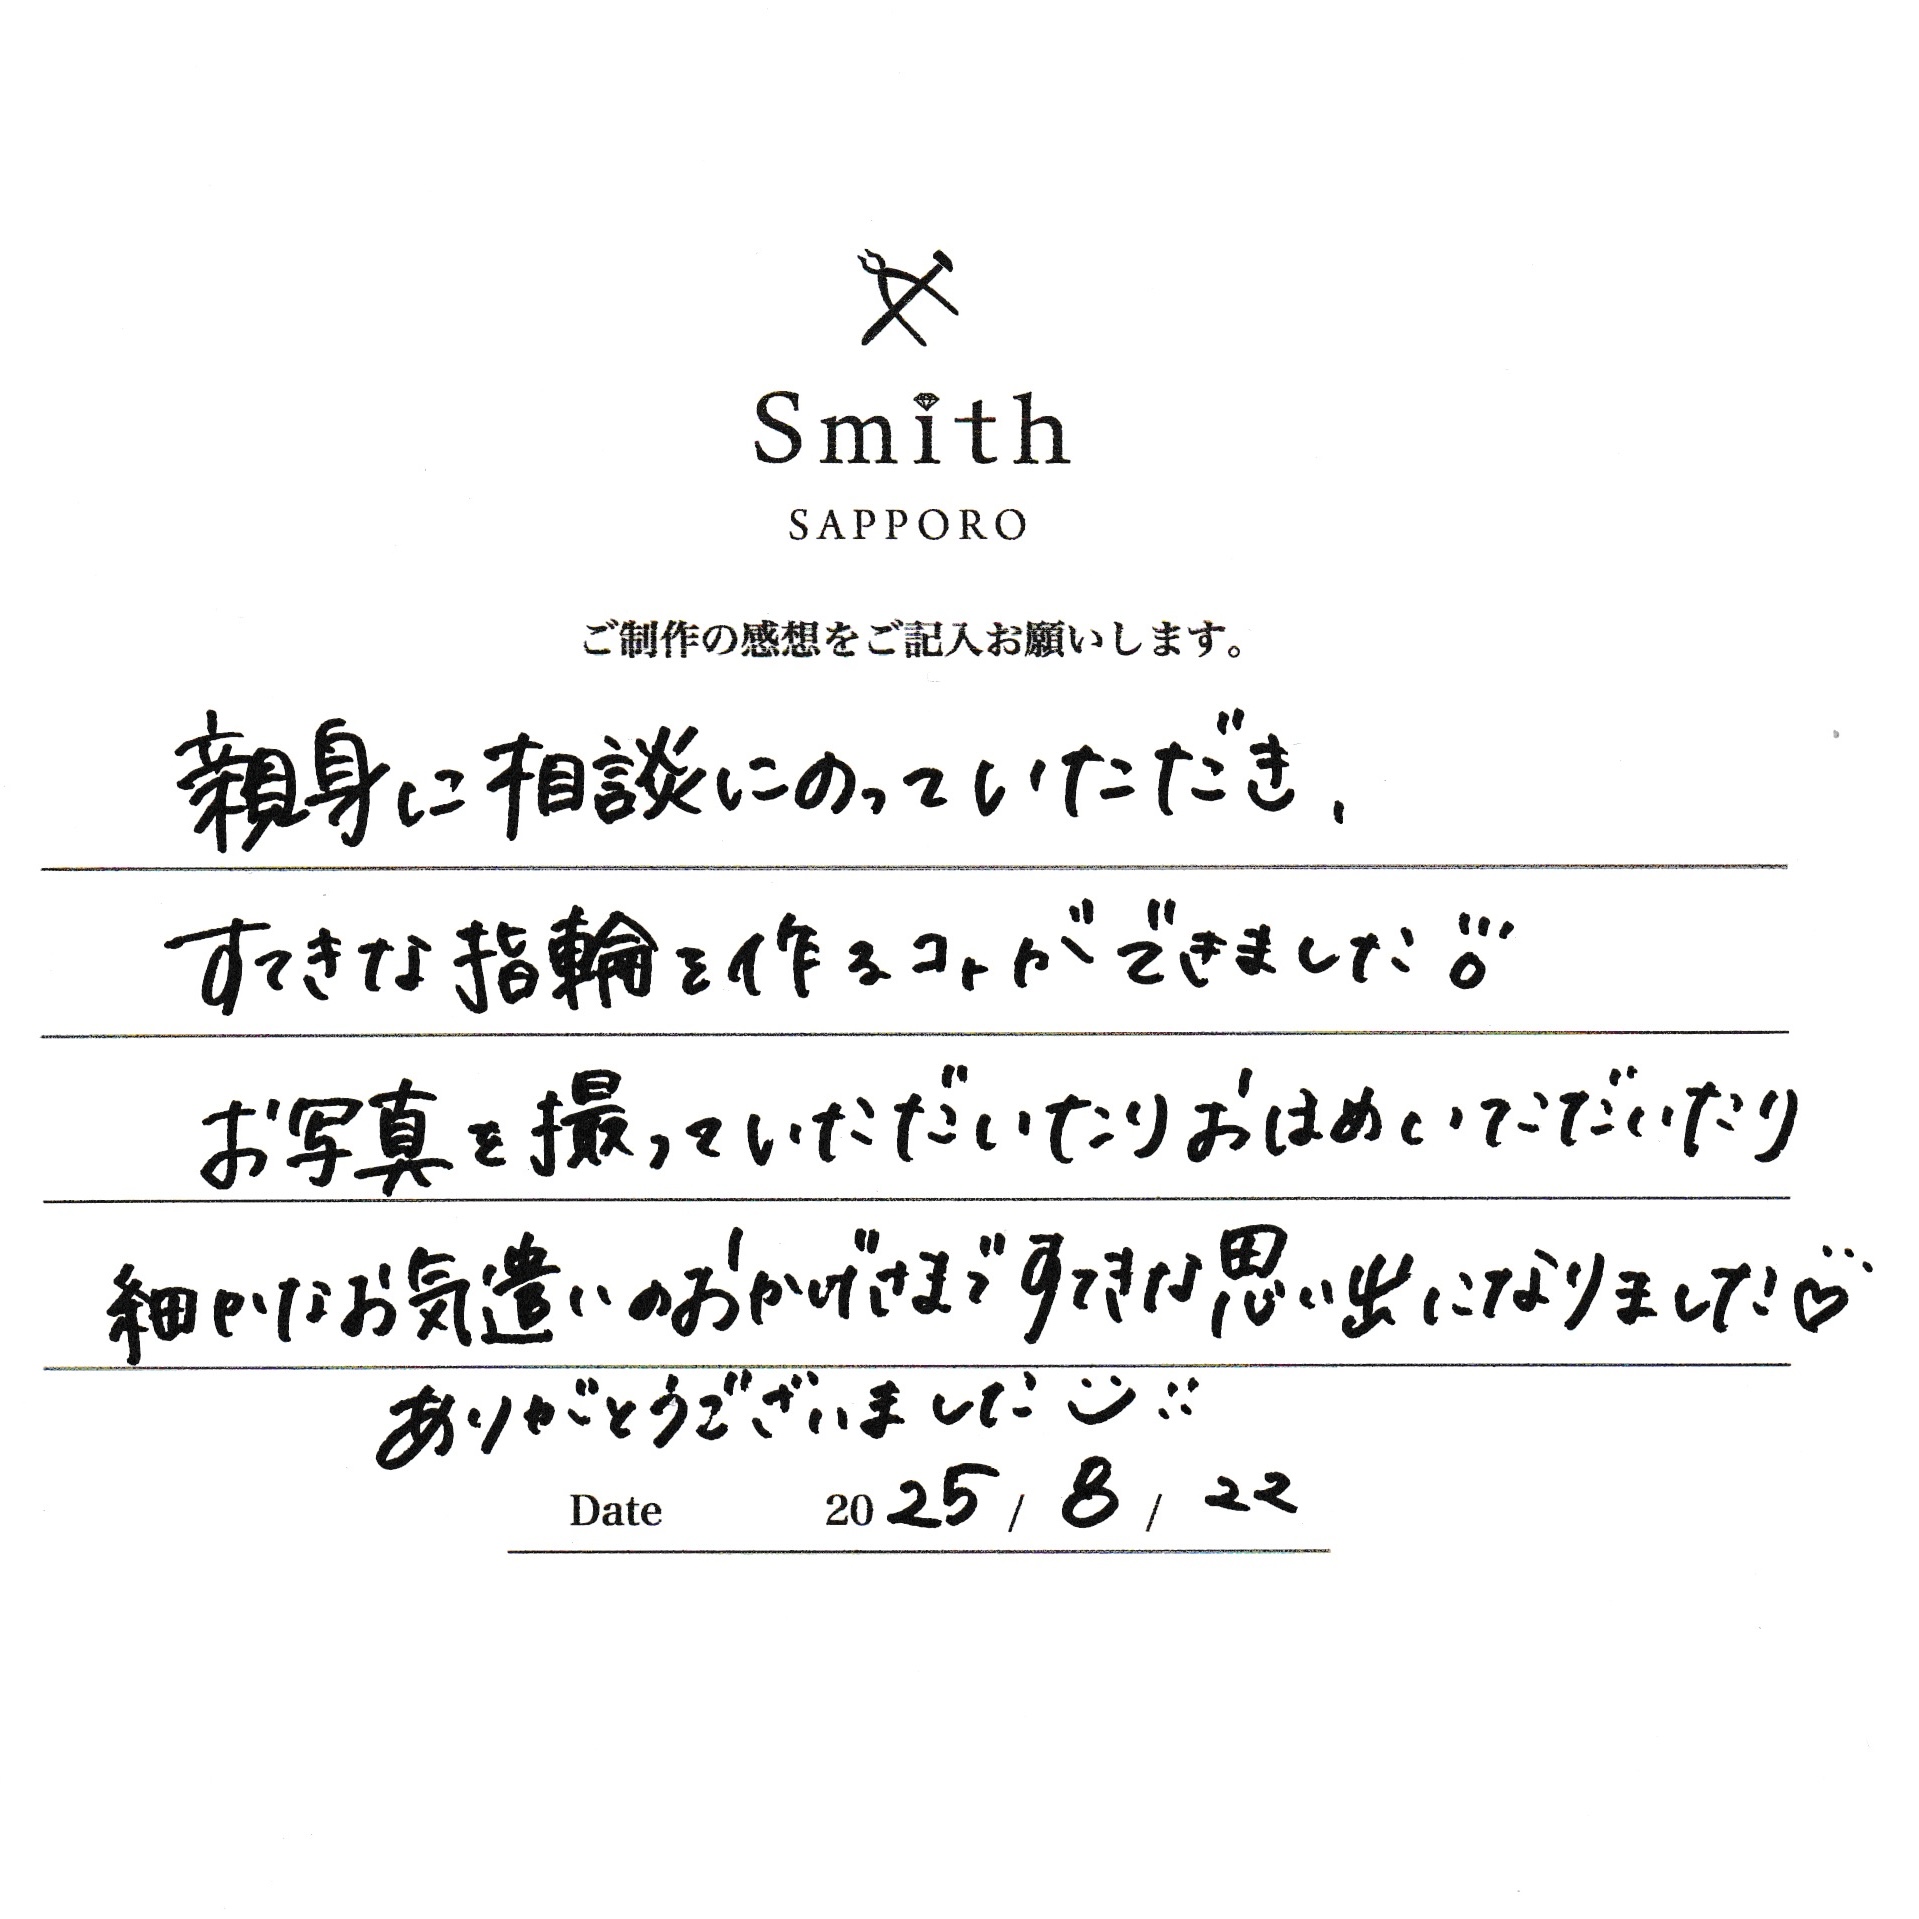 Smith
SAPPORO
ご制作の感想をご記入お願いします。
親身に相談にのっていただき、
すてきな指輪を作るコトができました
お写真を撮っていただいたりおほめいただいたり
細やかなお気遣いのおかげさまですてきな思い出になりました♡
ありがとうございました
Date 2025 / 8 / 22